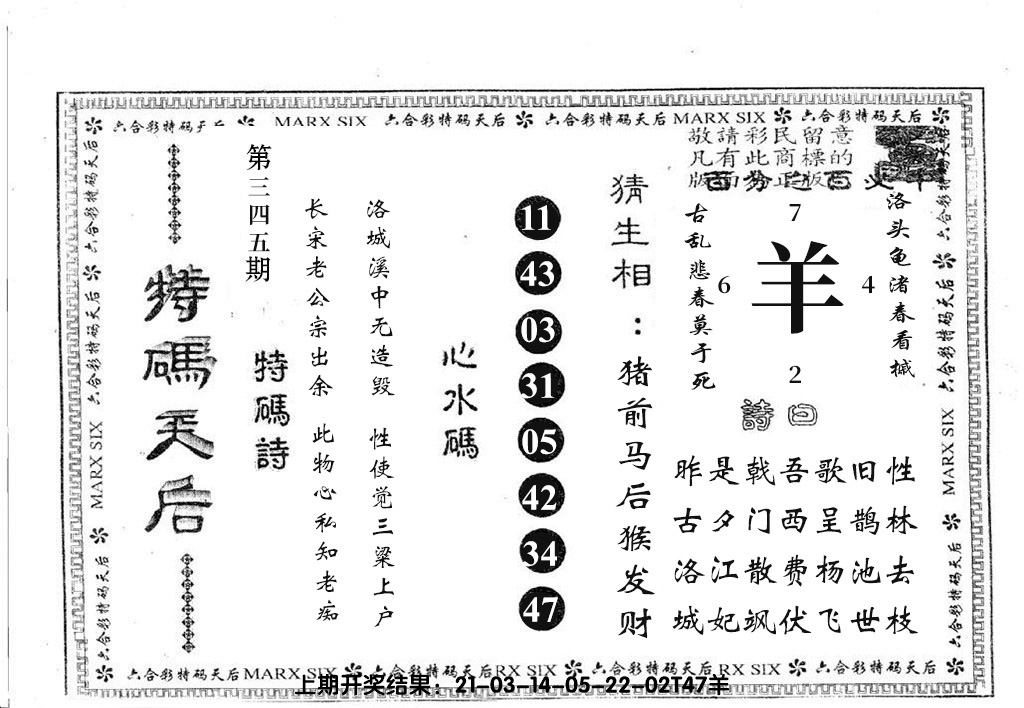 六合彩特码天后 MARX SIX 六合彩特码天后 六合彩特码天后 MARX SIX 六合彩特码天后
特碼天后
第三四五期
特碼詩
长宋老公宗出余 此物心私知老痴
洛城溪中无造毁 性使觉三梁上户
心水碼
11
43
03
31
05
42
34
47
猜生相：猪前马后猴发财
敬請彩民留意
凡有此商標的
版面为正版
古乱悲春莫于死
7
6
羊
4
2
洛头龟渚春看撼
詩曰
昨是戟吾歌旧性
古夕门西呈鹊林
洛江散费杨池去
城妃飒伏飞世枝
六合彩特码天后 MARX SIX 六合彩特码天后
六合彩特码天后 MARX SIX 六合彩特码天后
六合彩特码天后 MARX SIX 六合彩特码天后RX SIX 六合彩特码天后 RX SIX 六合彩特码天后
上期开奖结果：21-03-14-05-22-02T47羊